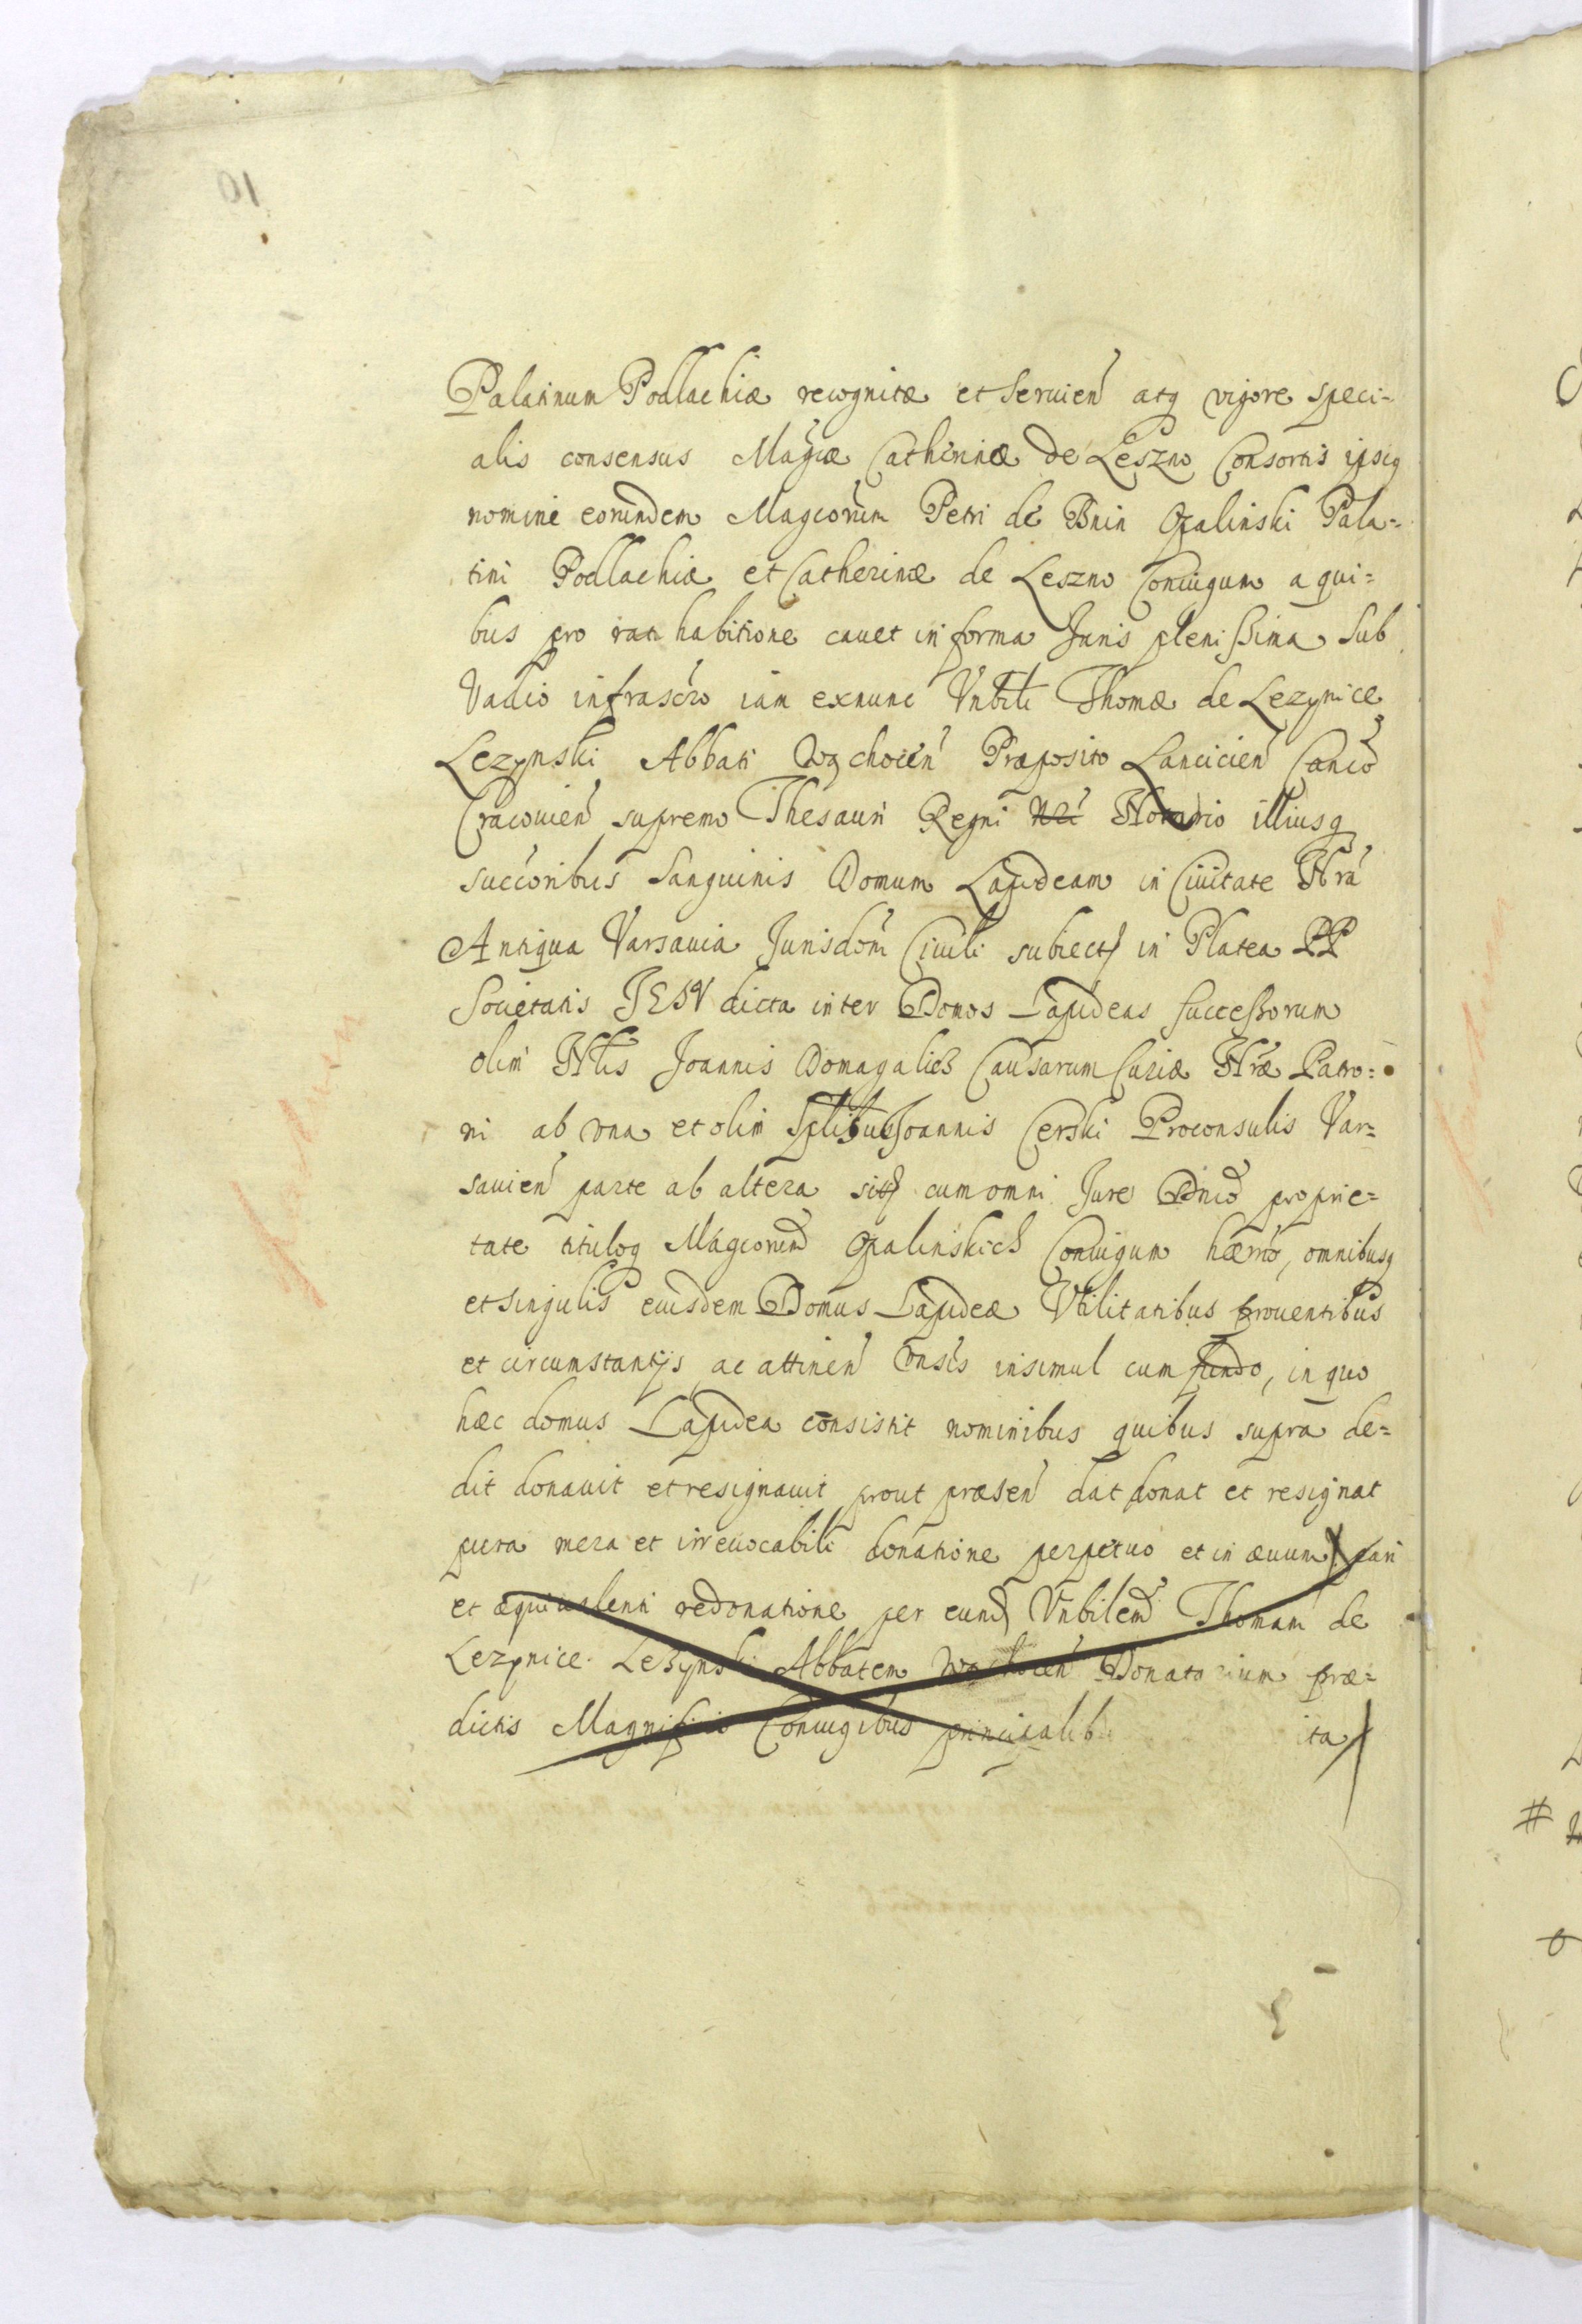 Palatinum Podlachiæ recognitæ et seruien̄ atq vigore speci=
alis consensus Magcæ Catherinæ de Leszno Consortis ipsiq
nomine eorundem Magcorum Petri de Bnin Opalinski Pala=
tini Podlachiæ et Catherinæ de Leszno Coniugum a qui=
bus pro rati habitione cauet in forma Juris plenissima sub
Vadio infrascro iam exnunc Vnbili Thomæ de Lezynice
Lezynski Abbati Wąchocen̄ Præposito Lancicien̄ Canco
Cracouien̄ supremo Thesauri Regni Nri Notario illiusq
succoribus Sanguinis Domum Lapideam in Ciuitate Nra
Antiqua Varsauia Jurisdoni Ciuili subiectą in Platea PP
Societatis JESV dicta inter Domos Lapideas successorum
olim Nlis Joannis Domagalich Causarum Curiæ Nræ Patro=
ni ab vna et olim Splibus Joannis Cerski Proconsulis Var=
sauien̄ parte ab altera sitą cum omni Jure Dnio proprie=
tate tituloq Magcorum Opalinskich Coniugum hærrio, omnibusq
et singulis eiusdem Domus Lapideæ Vtilitatibus prouentibus
et circumstantijs ac attinen̄ vnsis insimul cum fundo, in quo
hæc domus Lapidea consistit nominibus quibus supra de=
dit donauit et resignauit prout præsen̄ dat donat et resignat
pura mera et irreuocabili donatione perpetuo et in æuum pari
et æquiualenti redonatione per eund Vnbilem Thomam de
Lezynice Lezynski Abbatem Wąchocen̄ Donatarium præ=
dictis Magnificis Coniugibus principalib ita
10